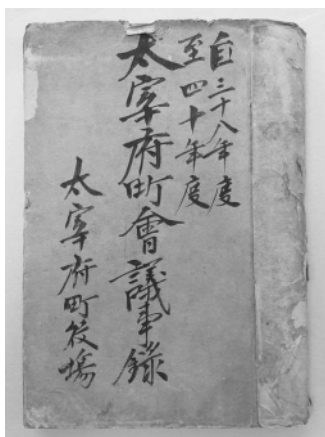 自三十八年度
至四十年度
太宰府町會議事錄
太宰府町役場